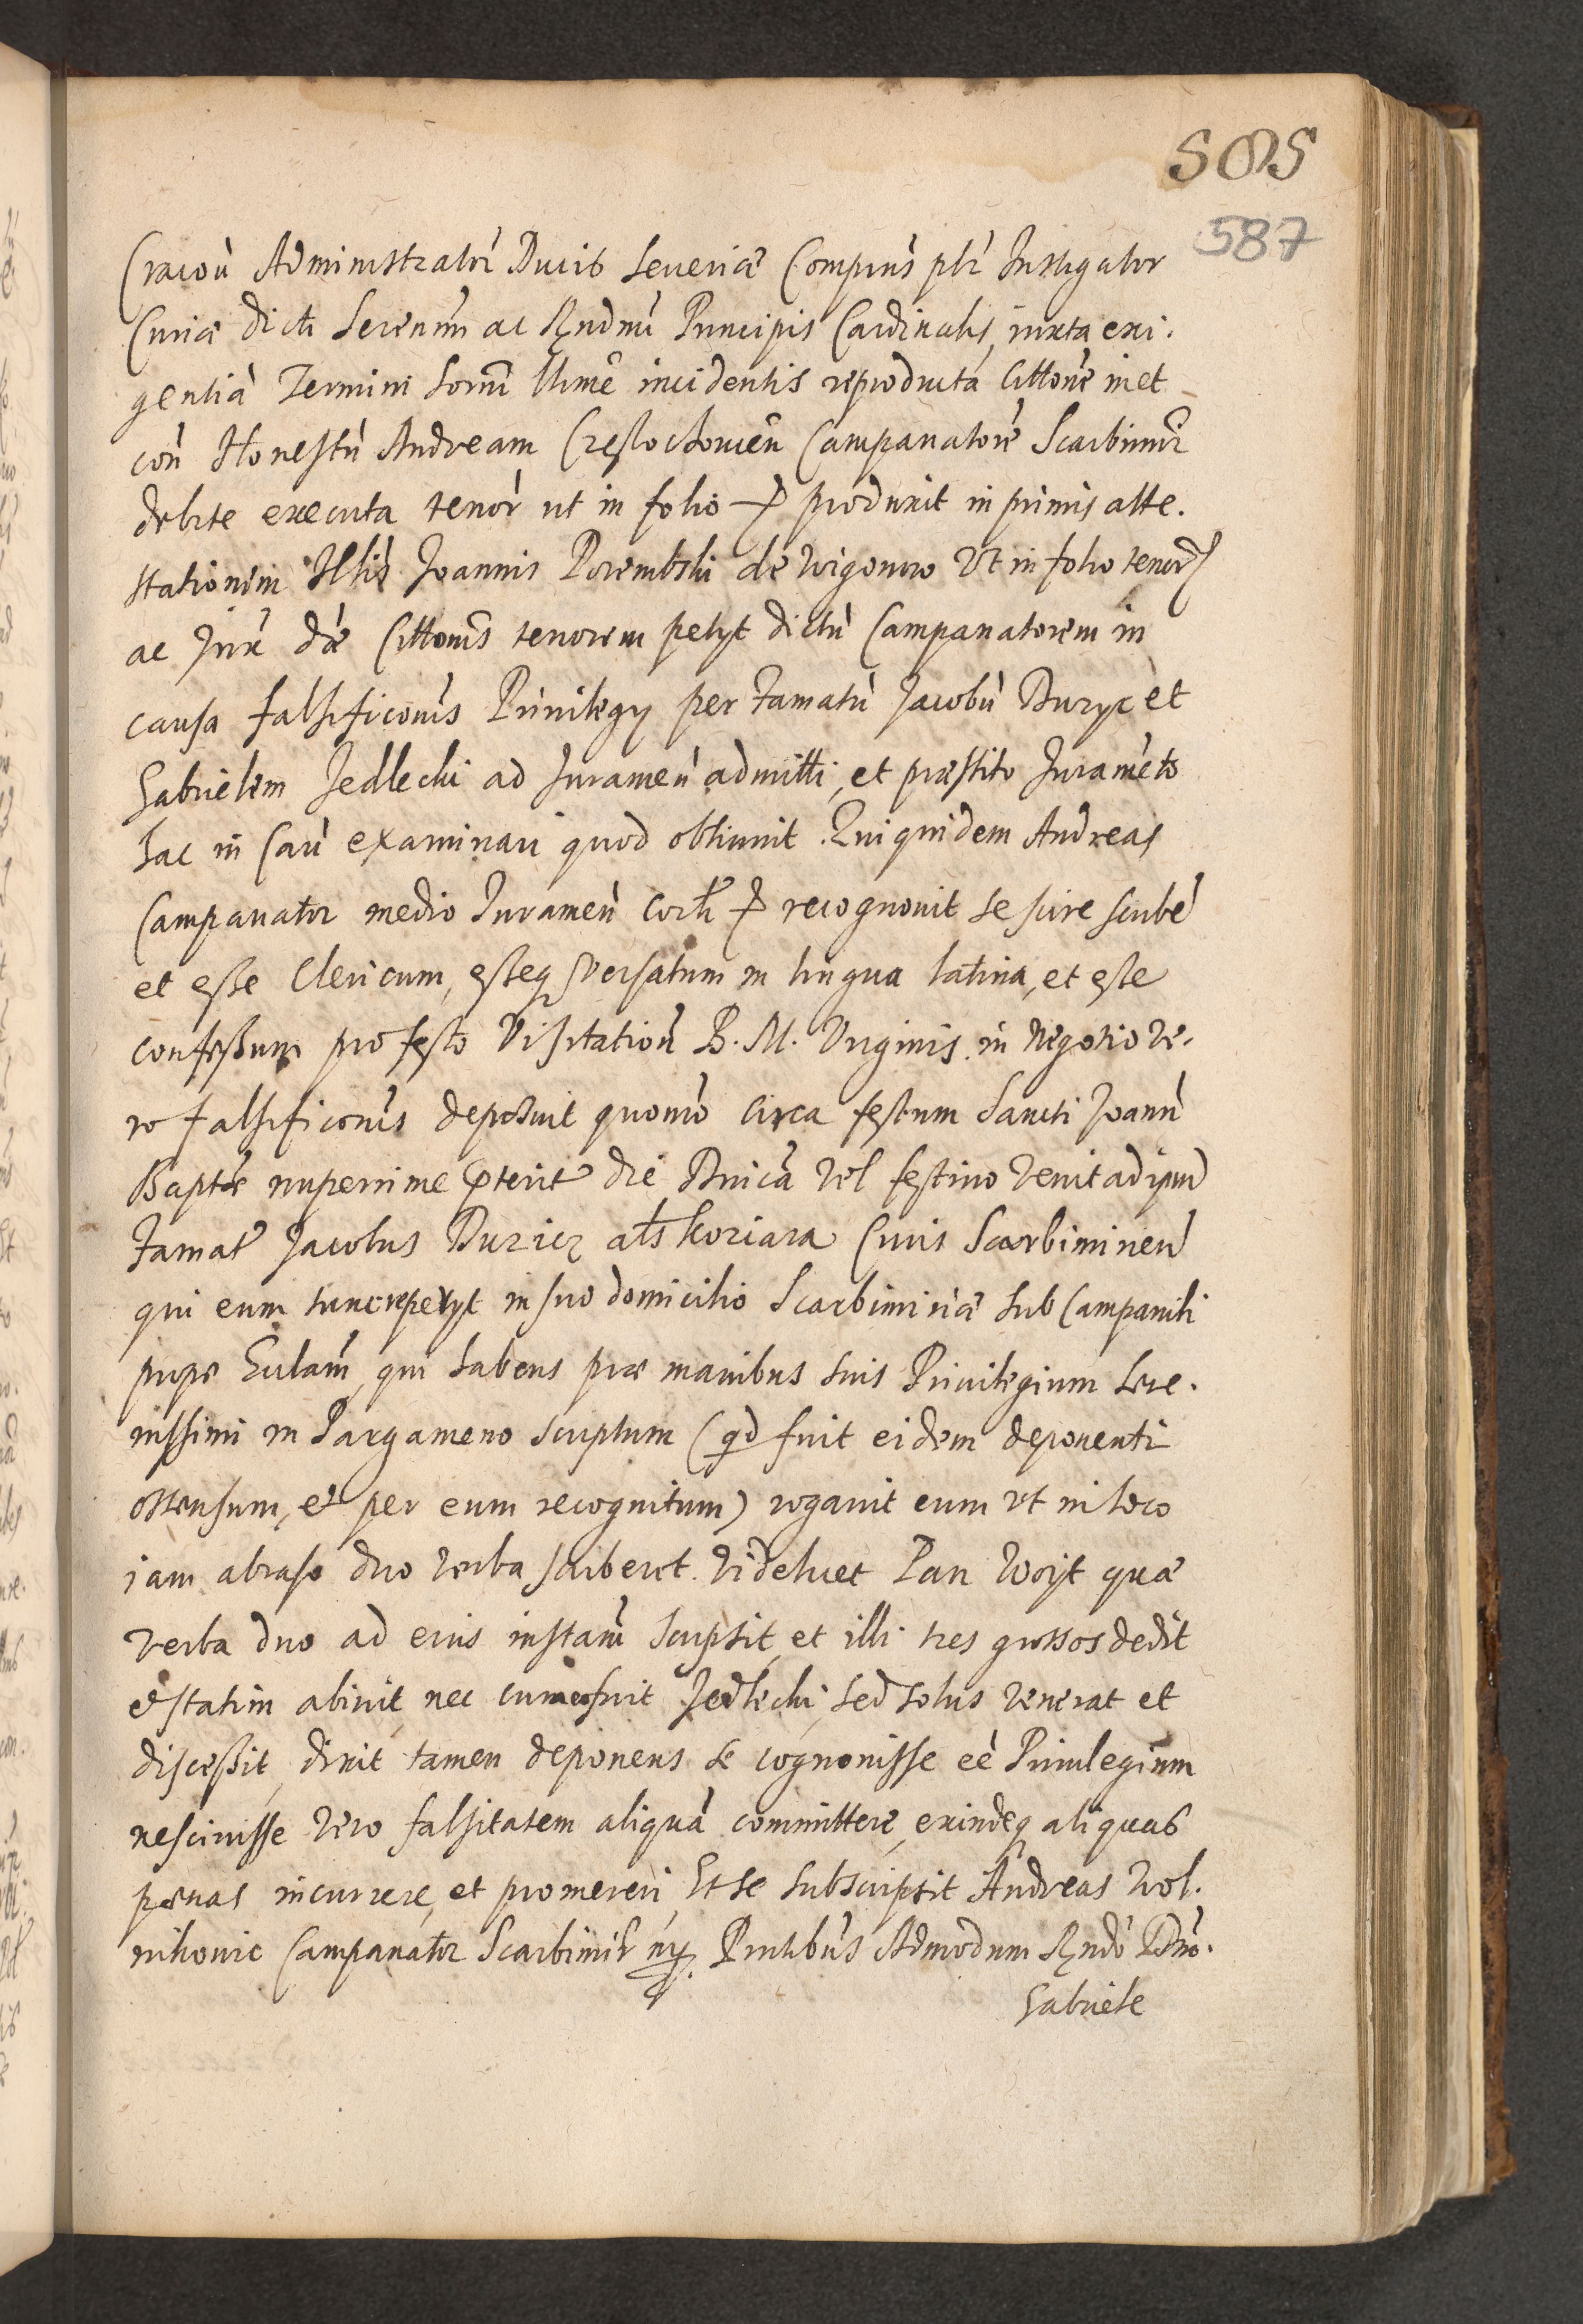 505
587
Cracoǹ Administratoŕ Ducis Seueriæ Compeǹs pŕr Instigator
Curiæ dicti Serenmi ac Rndmi Principis Cardinalis, iuxta exi-
gentiā Termini horni Ulrme incidentis reproducta Cittone in et
con Honestū Andream Cręstochouień Campanatore Scarbimir
debite executa tenor ut in folio produxit in primis atte-
stationem Illis Joannis Porembski de Wigonwo Vt in folio tenor
ac Jux dæ Cittonis tenorem petyt dictū Campanatorem in
causa falsificonis Priuilegy per Famatū Jacobū Duryc et
Gabrielem Jedlecki ad Juramen admitti, et præstito Juramēto
hac in Caū examinari quod obtinuit. Qui quidem Andreas
Campanator medio Jurameǹ Corli recognouit se scire scribe
et esse Clericum, esseq versatum in lingua latina, et esse
confessum pro festo Visitation B. M. Virginis. in Negotio ve-
ro falsificonis deposuit quomo circa festum Sancti Joann
Baptæ nuperrime præterit die Dnica vel festiuo venit ad ipm
Famat Jacobus Duricz als koziara Ciuis Scarbimirien
qui eum tunc repetyt in suo domicilio Scarbimiriæ sub Campanili
prope Eclam, qui habens præ manibus suis Priuilegium Sere-
nissimi in Pargameno scriptum (qd fuit eidem deponenti
ostensum, et per eum recognitum) rogauit eum vt in loco
iam abraso duo verba scriberet. Videlicet Pan Woyt quæ
verba duo ad eius instam scripsit, et illi tres grossos dedit
et statim abiuit nec cum eo fuit Jedlecki, sed solus venerat et
discessit, dixit tamen deponens se cognouisse eē Priuilegium
nesciuisse vero falsitatem aliquā committere, exindeq aliquas
pœnas incurrere, et promereri, Et se subscripsit Andreas Wol-
nikouic Campanator Scarbimir mp. Pntibus Admodum Rndo Dno.
Gabriele